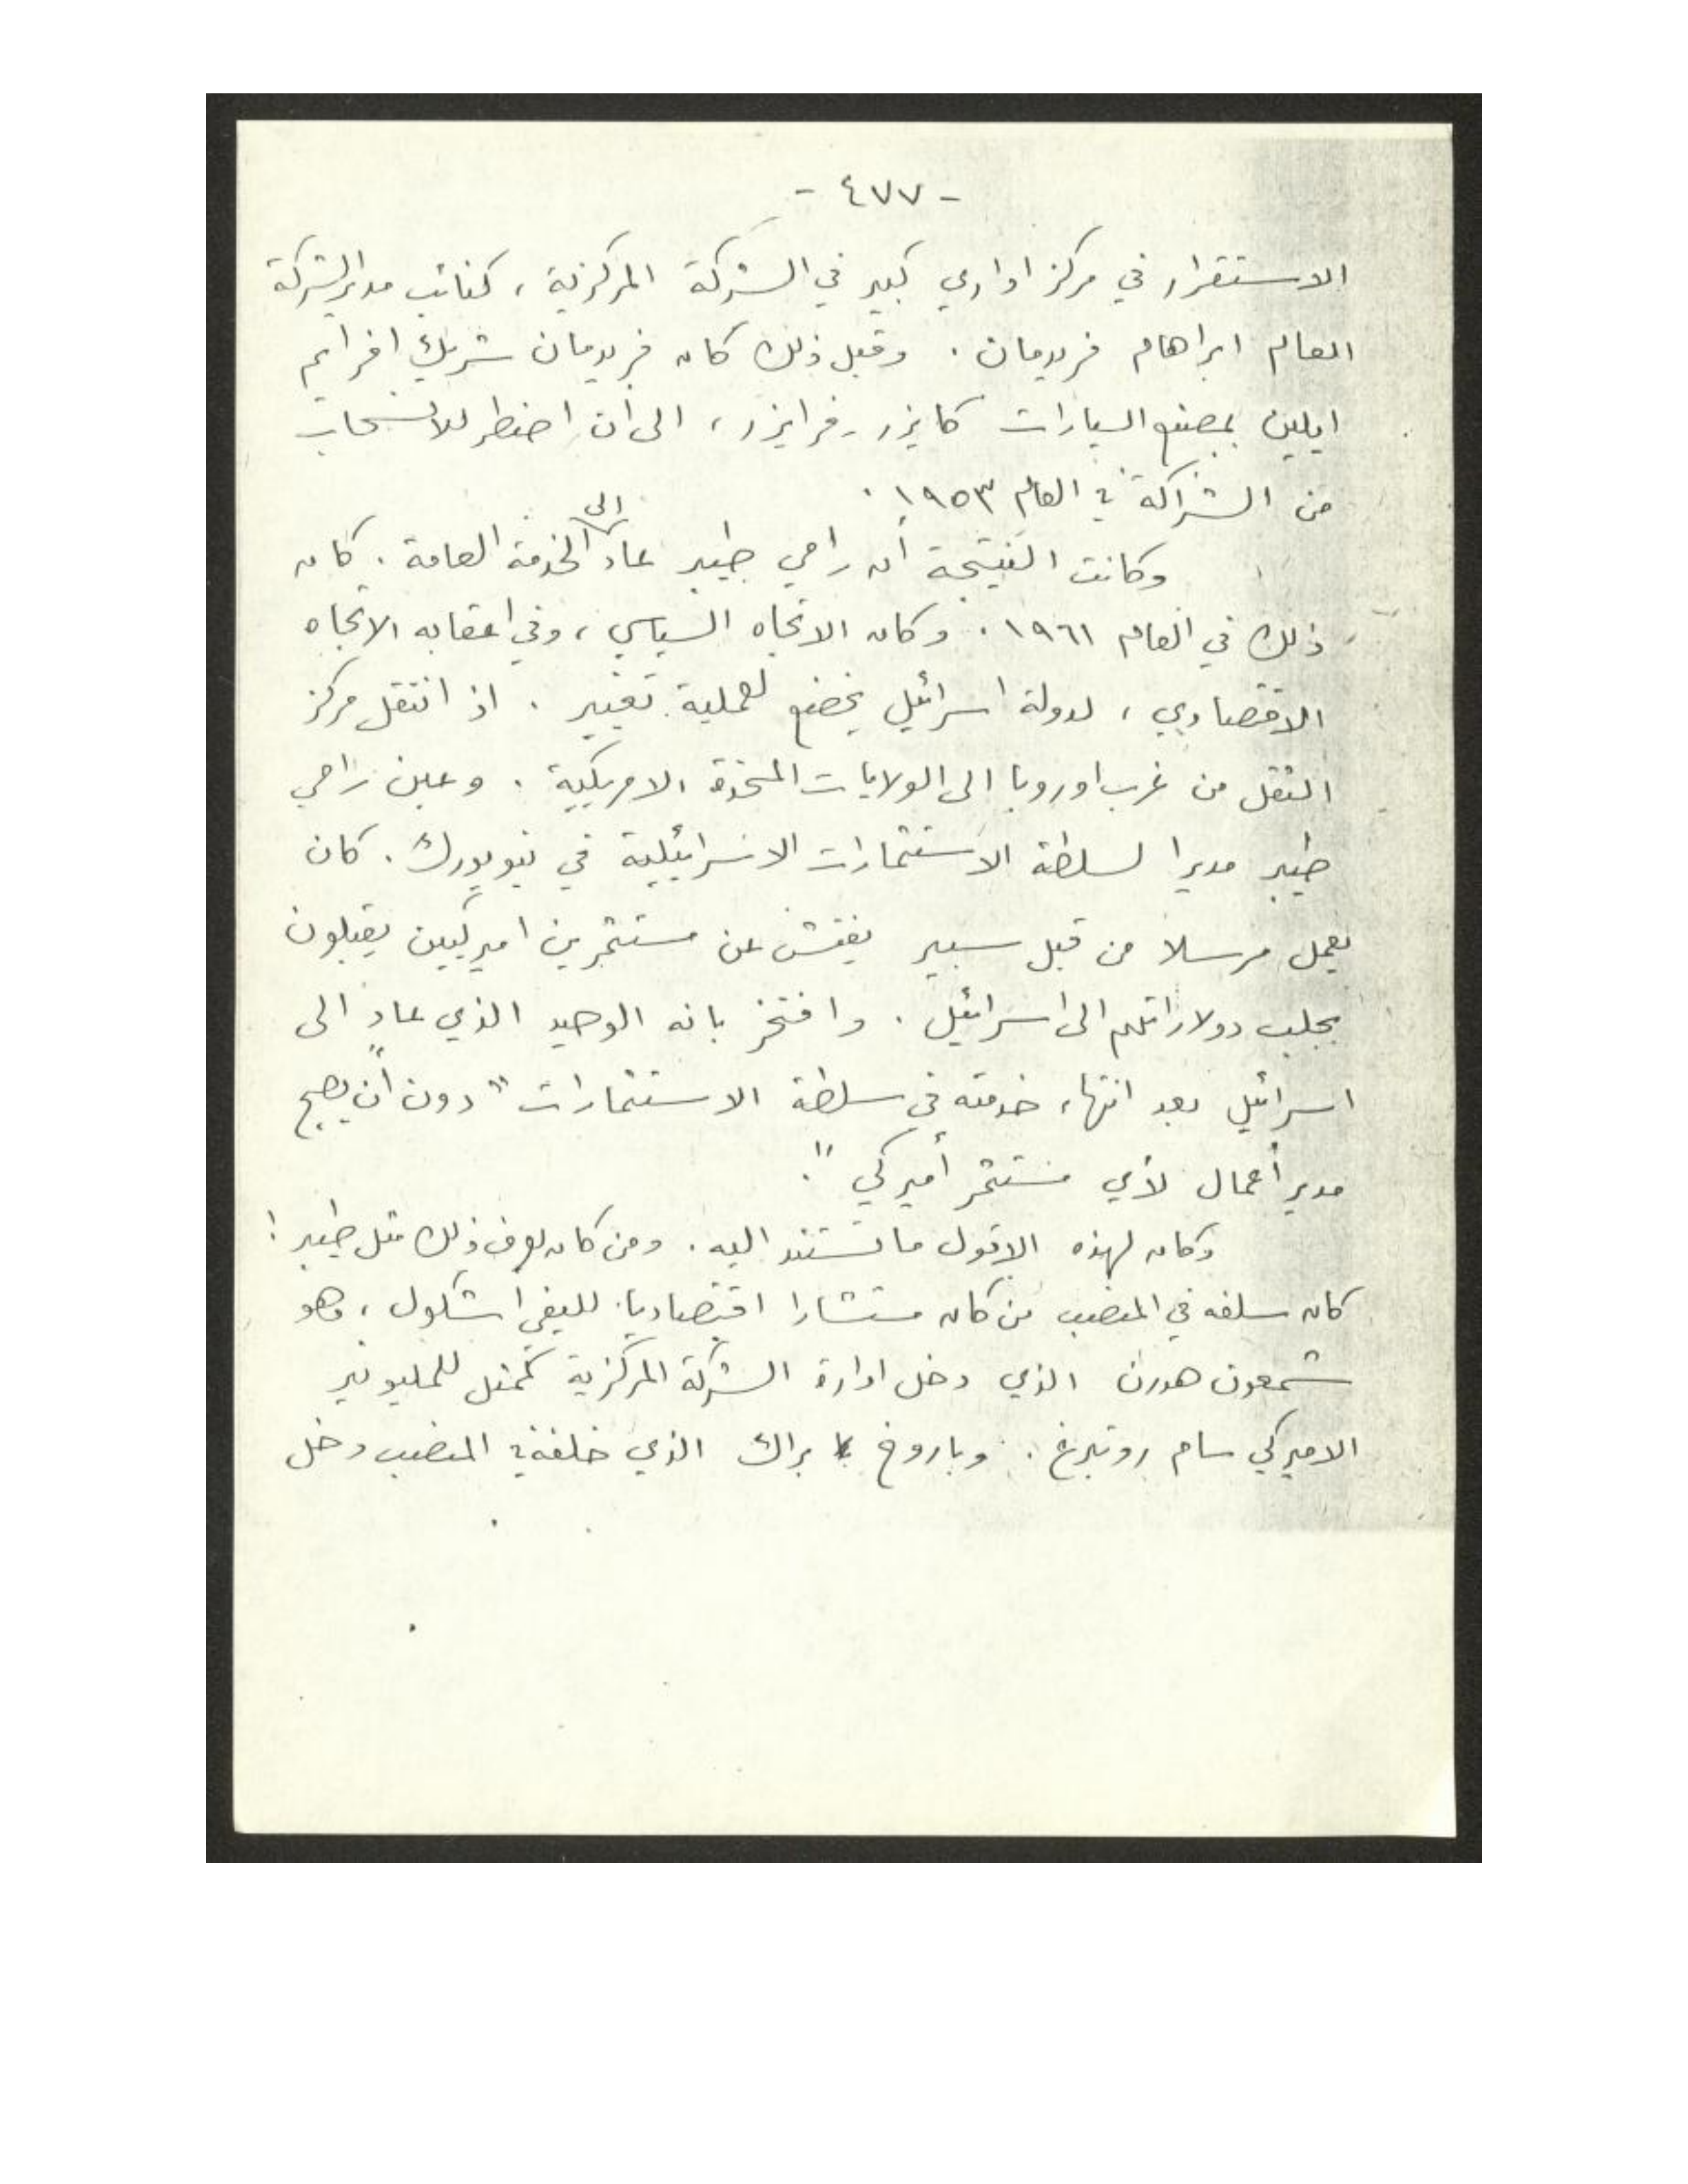 - ٤٧٧ -
الاستقرار في مركز اداري كبير في الشركة المركزية ، كنائب مدير الشركة
العام ابراهام فريدمان . وقبل ذلك كان فريدمان شريك افرايم
ايلين بمصنع السيارات كايزر - فرايزر ، الى ان اضطر للانسحاب
من الشراكة في العام ١٩٥٣ .
وكانت النتيجة أن رامي طيبر عاد الى الخدمة العامة . كان
ذلك في العام ١٩٦١ . وكان الاتجاه السياسي ، وفي اعقابه الاتجاه
الاقتصادي ، لدولة اسرائيل يخضع لعملية تغيير . اذ انتقل مركز
الثقل من غرب اوروبا الى الولايات المتحدة الامريكية . وعين رامي
طيبر مديرا لسلطة الاستثمارات الاسرائيلية في نيويورك . كان
يعمل مرسلا من قبل سبير يفتش عن مستثمرين اميركيين يقبلون
بجلب دولاراتهم الى اسرائيل . وافتخر بانه الوحيد الذي عاد الى
اسرائيل بعد انتهاء خدمته في سلطة الاستثمارات " دون أن يصبح
مدير أعمال لأي مستثمر أميركي " .
وكان لهذه الاقول ما تستند اليه . ومن كان يعرف ذلك مثل طيبر !
كان سلفه في المنصب من كان مستشارا اقتصاديا لليفي اشكول ، وهو
شمعون هورن الذي دخل ادارة الشركة المركزية كممثل للمليونير
الاميركي سام روتبرغ . وباروخ براك الذي خلفه في المنصب دخل